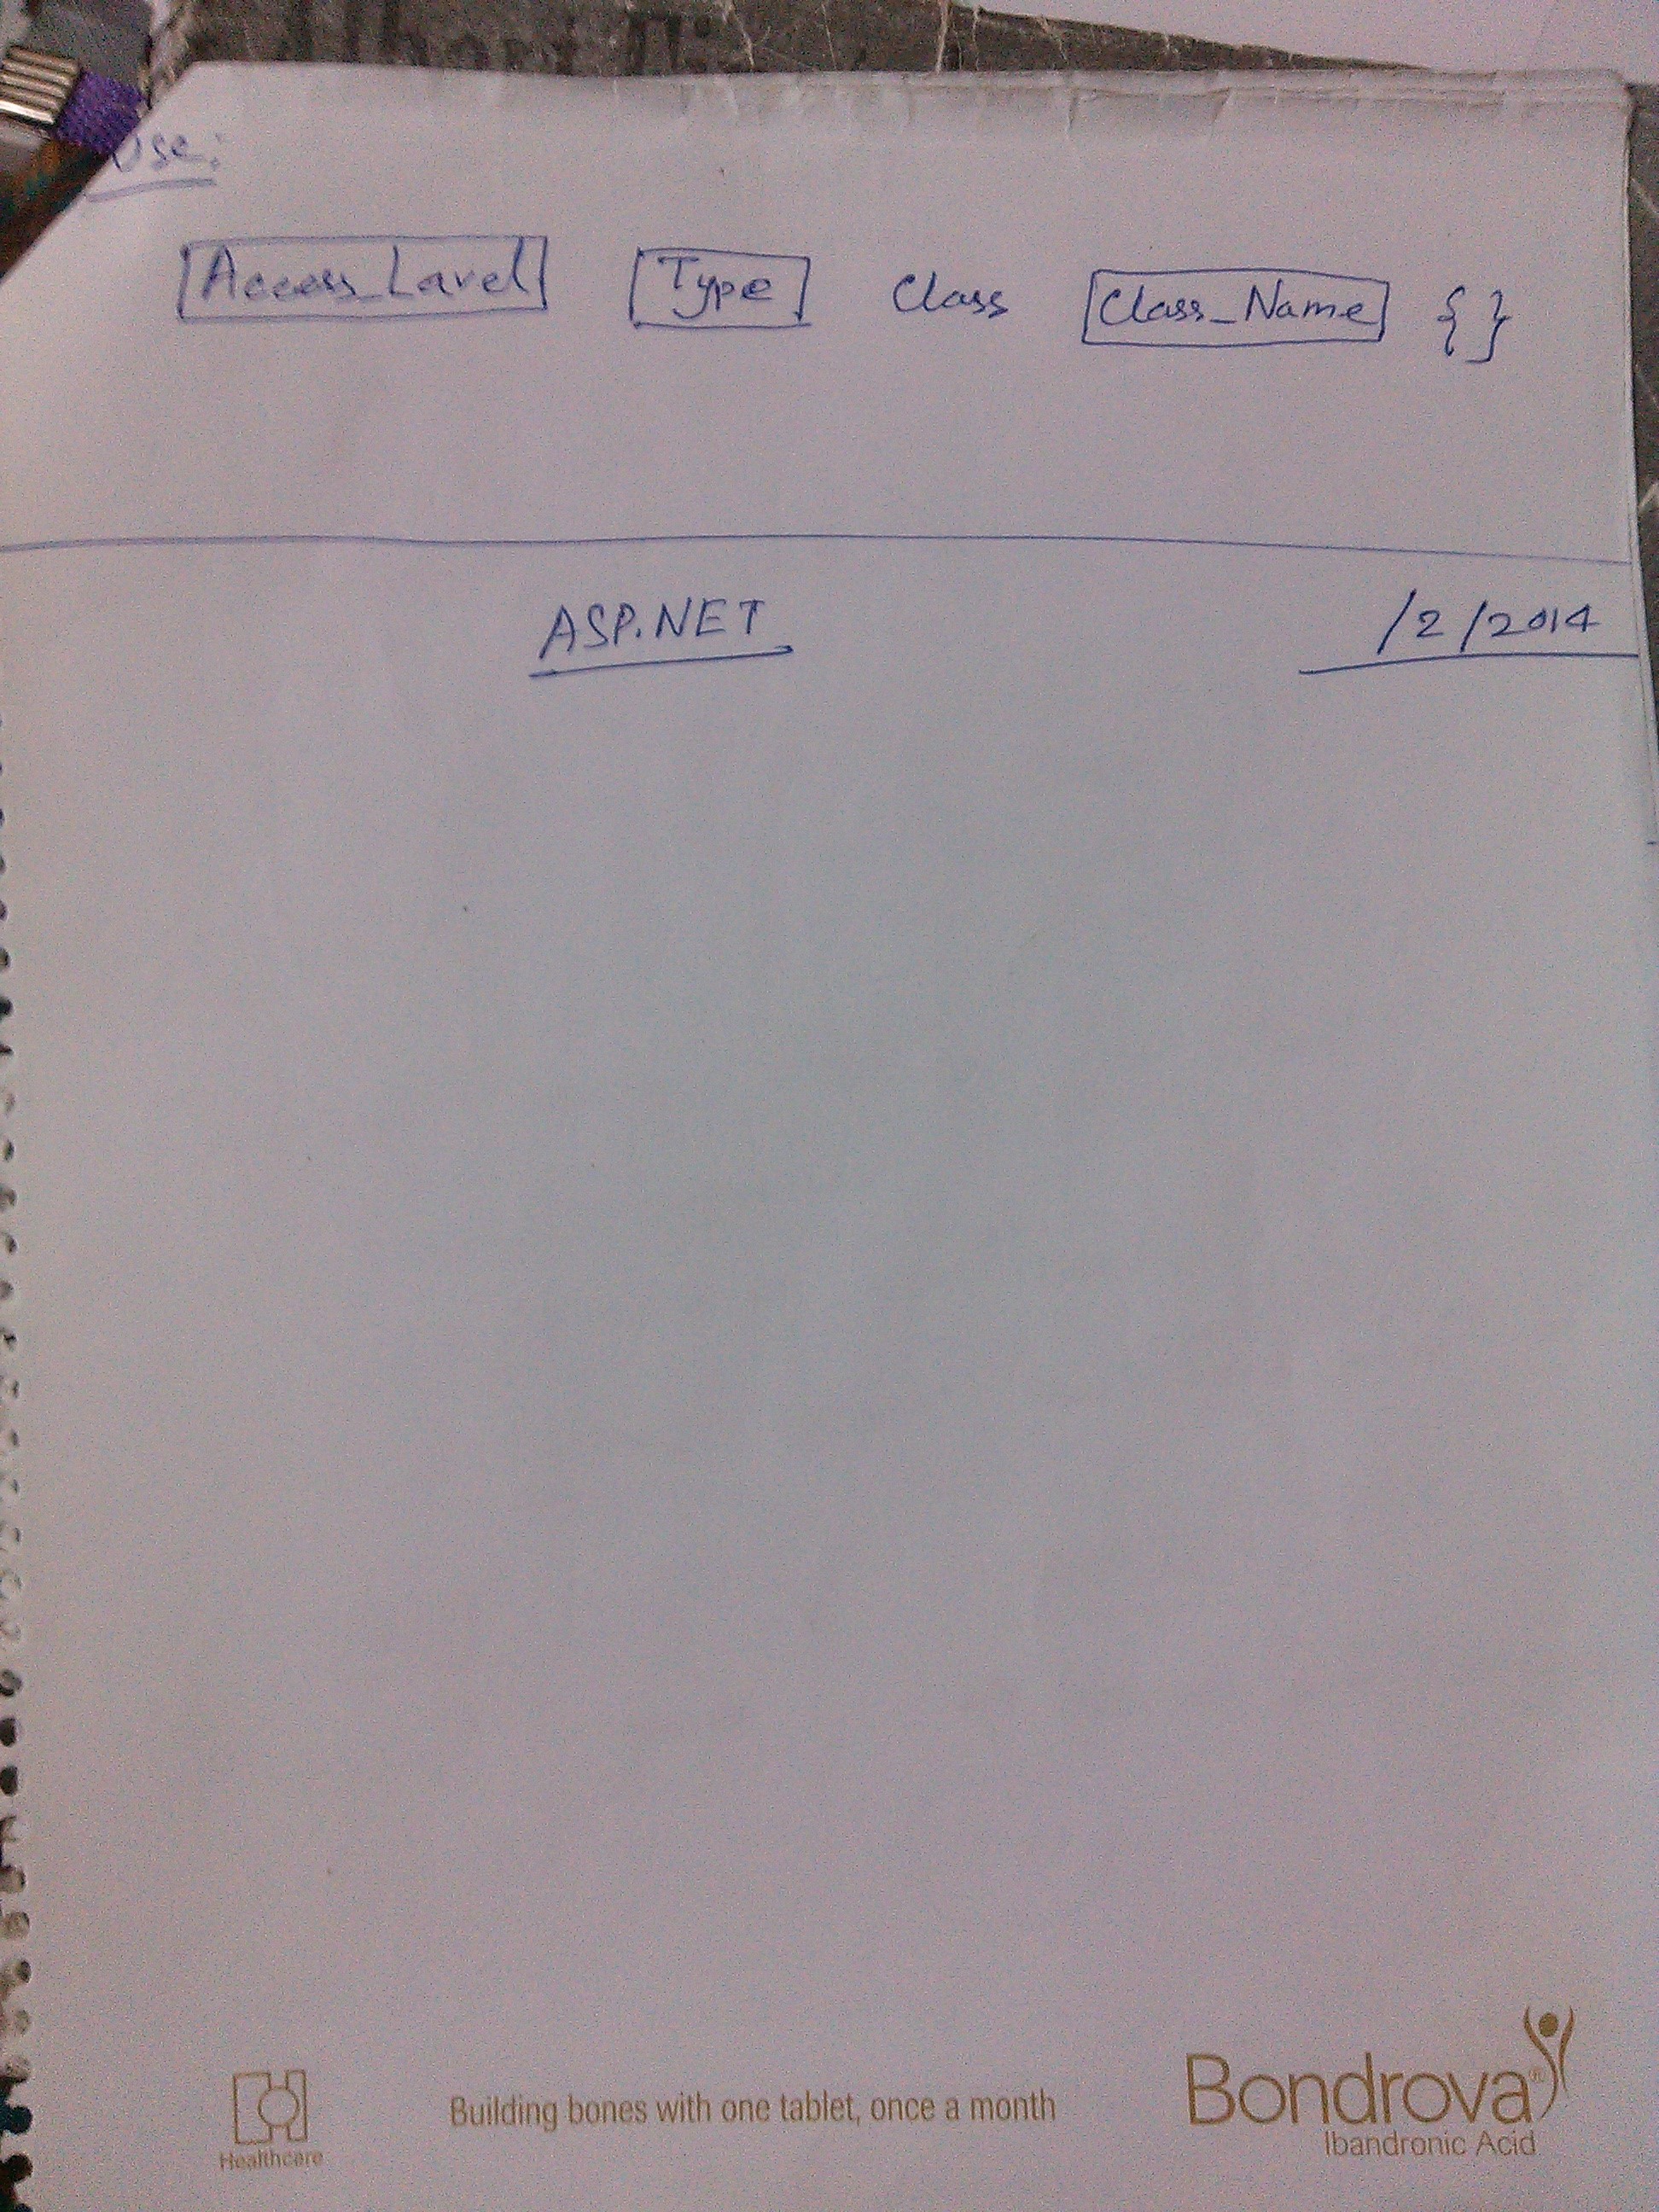 Use:
Access_Lavel Type Class Class_Name {}
ASP.NET /2/2014
Healthcare
Building bones with one tablet, once a month
Bondrova®
Ibandronic Acid